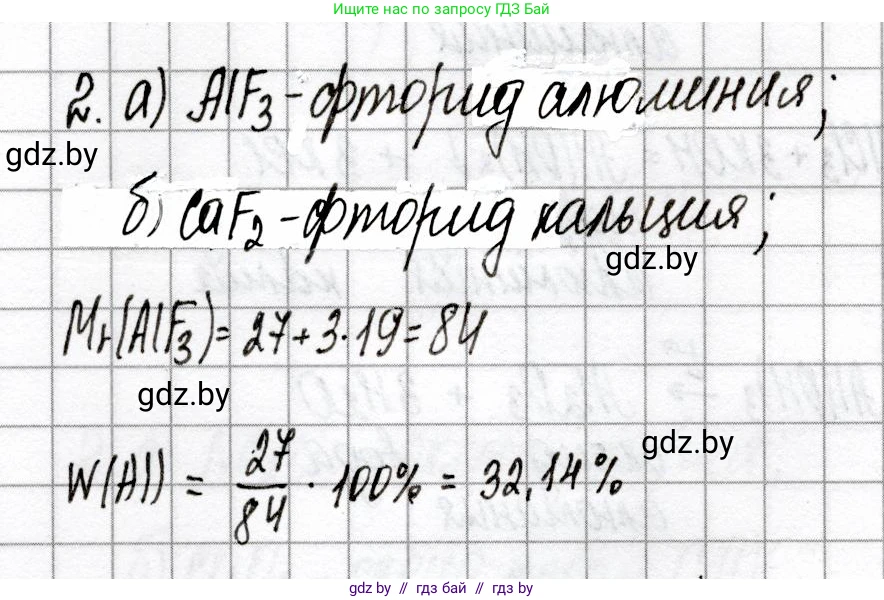 Ищите нас по запросу ГДЗ Бай
2. а) AlF₃ - фторид алюминия;
gdz.by
б) CaF₂ - фторид кальция;
gdz.by
Mr(AlF₃) = 27 + 3 · 19 = 84
gdz.by
gdz.by
W(Al) = 27/84 · 100% = 32,14%
gdz.by // гдз бай // gdz.by